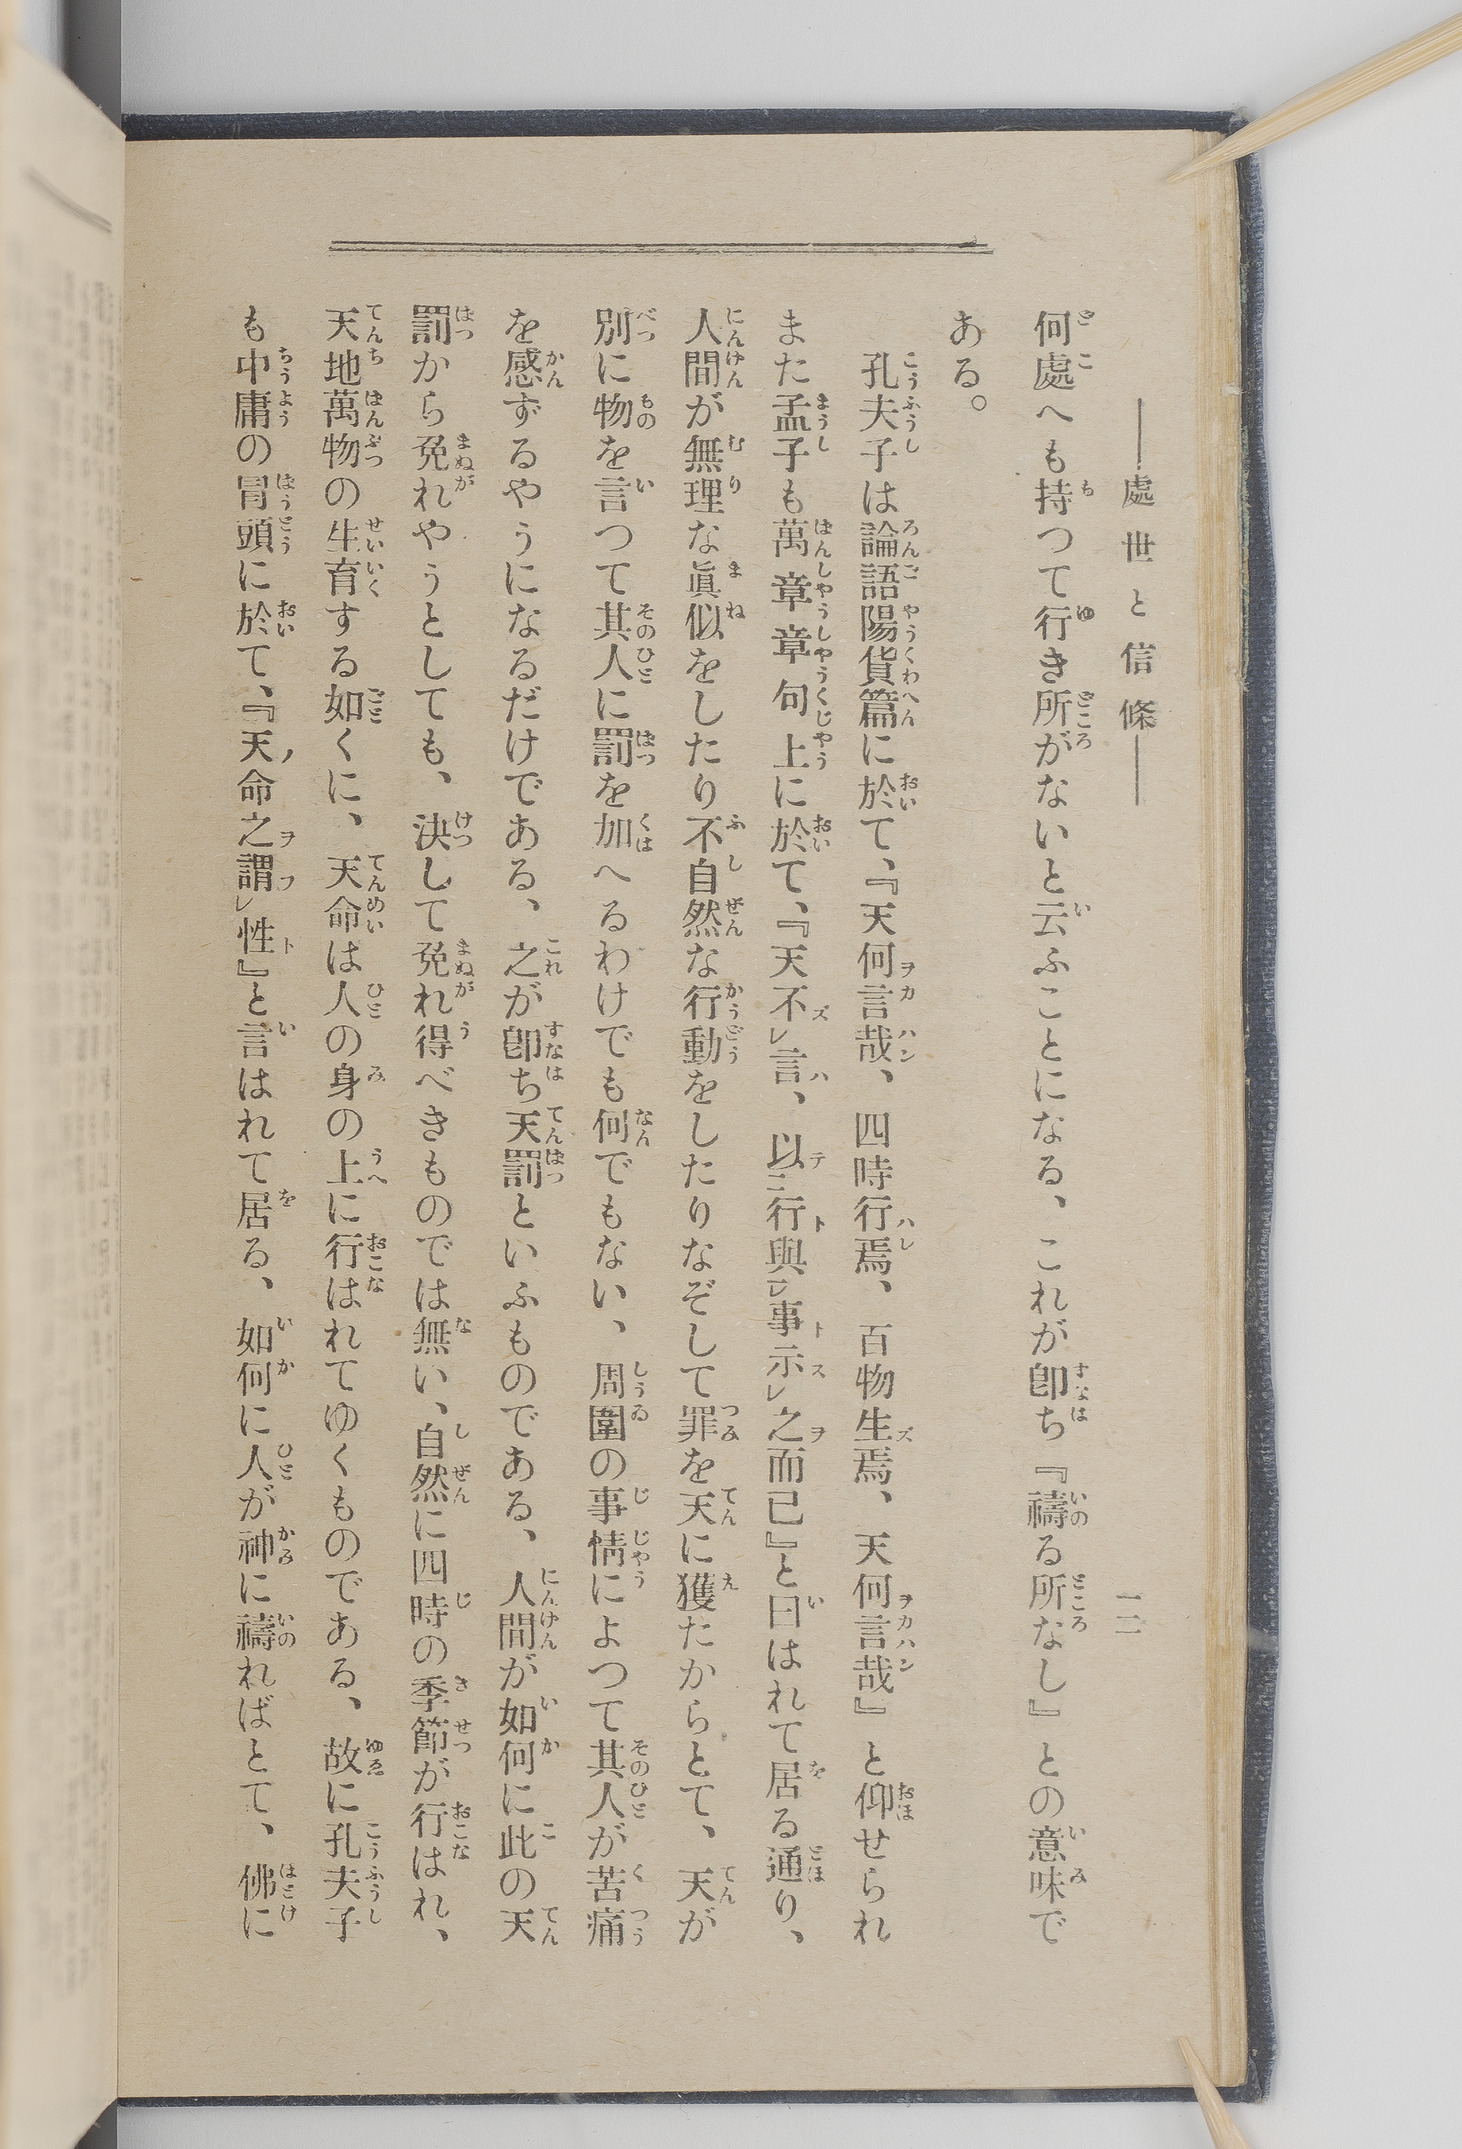 ―處世と信條―　一二
何處へも持つて行き所がないと云ふことになる、これが卽ち『禱る所なし』との意味で
ある。
孔夫子は論語陽貨篇に於て、『天何言哉、四時行焉、百物生焉、天何言哉』と仰せられ
また孟子も萬章章句上に於て、『天不レ言、以二行與一レ事示レ之而已』と曰はれて居る通り、
人間が無理な眞似をしたり不自然な行動をしたりなぞして罪を天に獲たからとて、天が
別に物を言つて其人に罰を加へるわけでも何でもない、周圍の事情によつて其人が苦痛
を感ずるやうになるだけである、之が卽ち天罰といふものである、人間が如何に此の天
罰から免れやうとしても、決して免れ得べきものでは無い、自然に四時の季節が行はれ、
天地萬物の生育する如くに、天命は人の身の上に行はれてゆくものである、故に孔夫子
も中庸の冒頭に於て、『天命之謂レ性』と言はれて居る、如何に人が神に禱ればとて、佛に